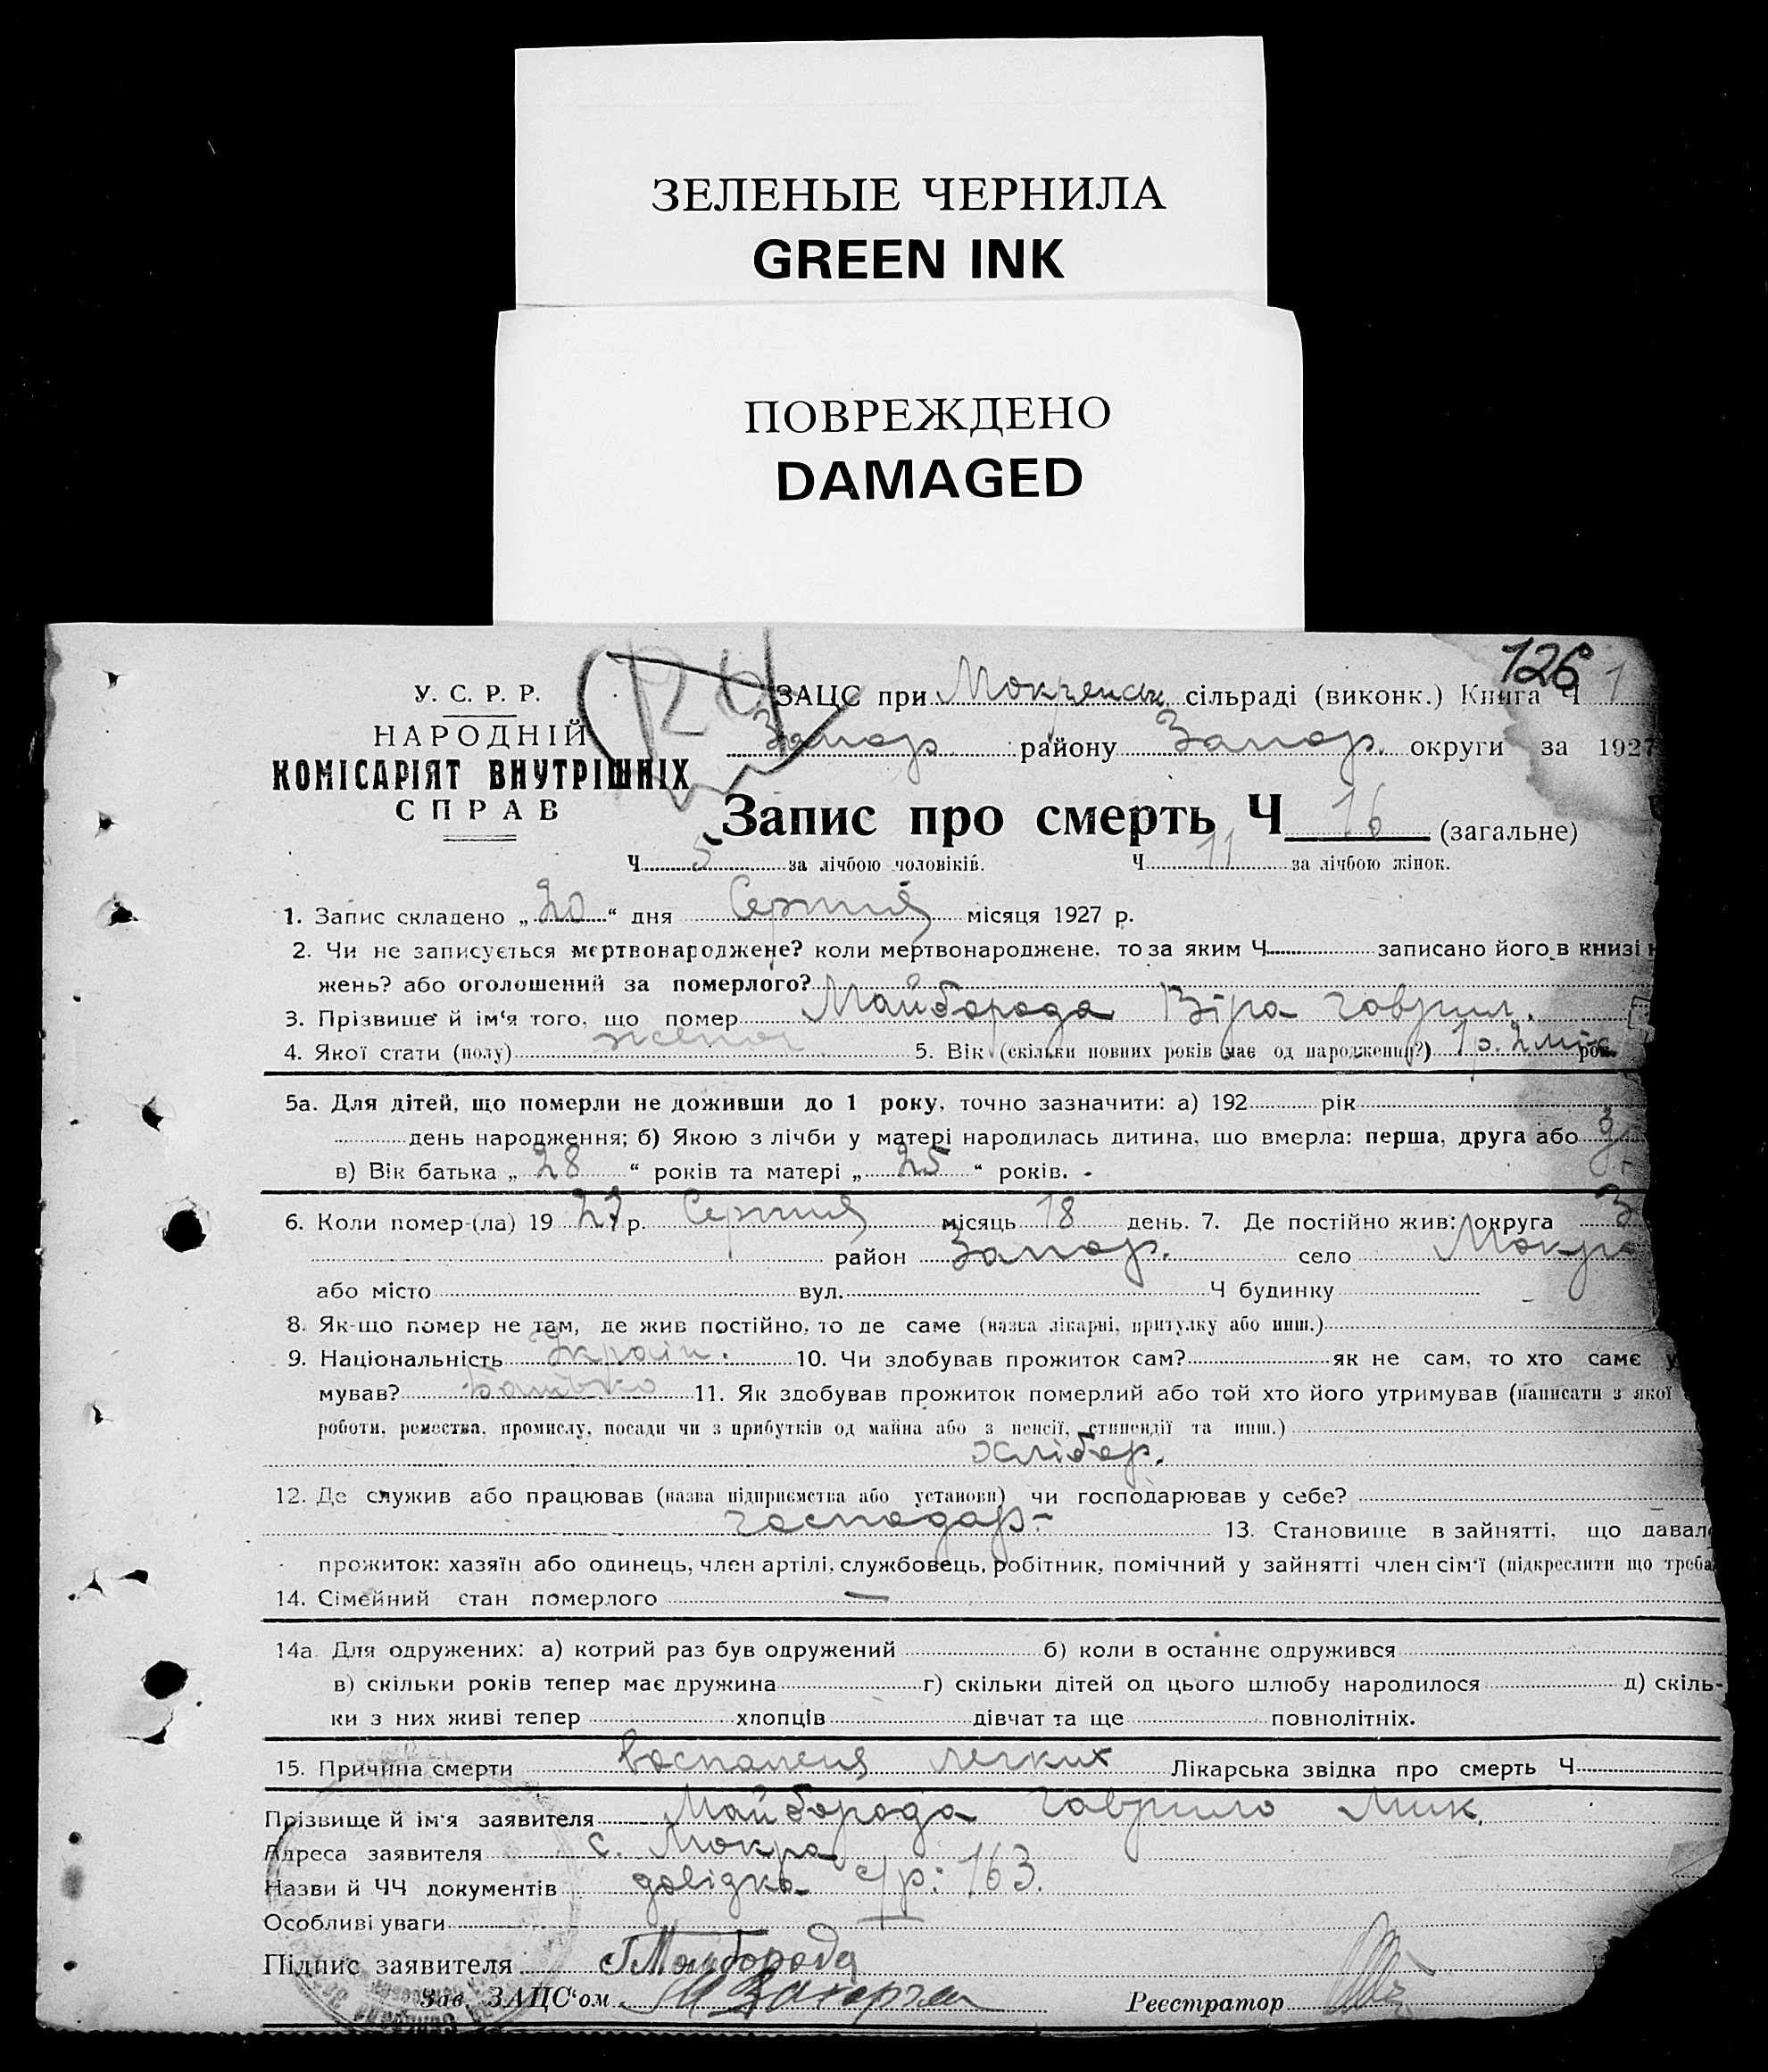 ЗЕЛЕНЫЕ ЧЕРНИЛА
GREEN INK
ПОВРЕЖДЕНО
DAMAGED
126
У. С. Р. Р.
НАРОДНІЙ
КОМІСАРІЯТ ВНУТРІШНІХ
СПРАВ
ЗАЦС при Мокрянськ. сільраді (виконк.) Книга Ч 1
Запор. району Запор. округи за 1927
Запис про смерть Ч 16 (загальне)
Ч 5 за лічбою чоловіків. Ч 11 за лічбою жінок.
1. Запис складено „20“ дня Серпня місяця 1927 р.
2. Чи не записується мертвонароджене? коли мертвонароджене, то за яким Ч. записано його в книзі н
жень? або оголошений за померлого?
3. Прізвище й ім‘я того, що помер Майборода Віра Гаврил.
4. Якої стати (полу) жіноч 5. Вік (скільки повних років має од народження?) 1 р. 2 міс рок.
5а. Для дітей, що померли не доживши до 1 року, точно зазначити: а) 192 рік
день народження; б) Якою з лічби у матері народилась дитина, що вмерла: перша, друга або
в) Вік батька „28“ років та матері „25“ років.
6. Коли помер-(ла) 1927 р. Серпня місяць 18 день. 7. Де постійно жив: округа З
район Запор. село Мокра
або місто вул. Ч будинку
8. Як-що помер не там, де жив постійно, то де саме (назва лікарні, притулку або инш.)
9. Національність Україн. 10. Чи здобував прожиток сам? як не сам, то хто саме у
мував? батько 11. Як здобував прожиток померлий або той хто його утримував (написати з якої
роботи, ремества, промислу, посади чи з прибутків од майна або з пенсії, стипендії та инш.)
хлібор.
12. Де служив або працював (назва підприємства або установи) чи господарював у себе?
господар- 13. Становище в зайнятті, що давал
прожиток: хазяїн або одинець, член артілі, службовець, робітник, помічний у зайнятті член сім‘ї (підкреслити що треба
14. Сімейний стан померлого —
14а. Для одружених: а) котрий раз був одружений б) коли в останнє одружився
в) скільки років тепер має дружина г) скільки дітей од цього шлюбу народилося д) скіль-
ки з них живі тепер хлопців дівчат та ще повнолітніх.
15. Причина смерти воспаления легких Лікарська звідка про смерть Ч
Прізвище й ім‘я заявителя Майборода Гаврило Мик.
Адреса заявителя с. Мокра
Назви й ЧЧ документів довідка с/р: 163.
Особливі уваги
Підпис заявителя Г Майборода
Зав. ЗАЦС‘ом
Реєстратор